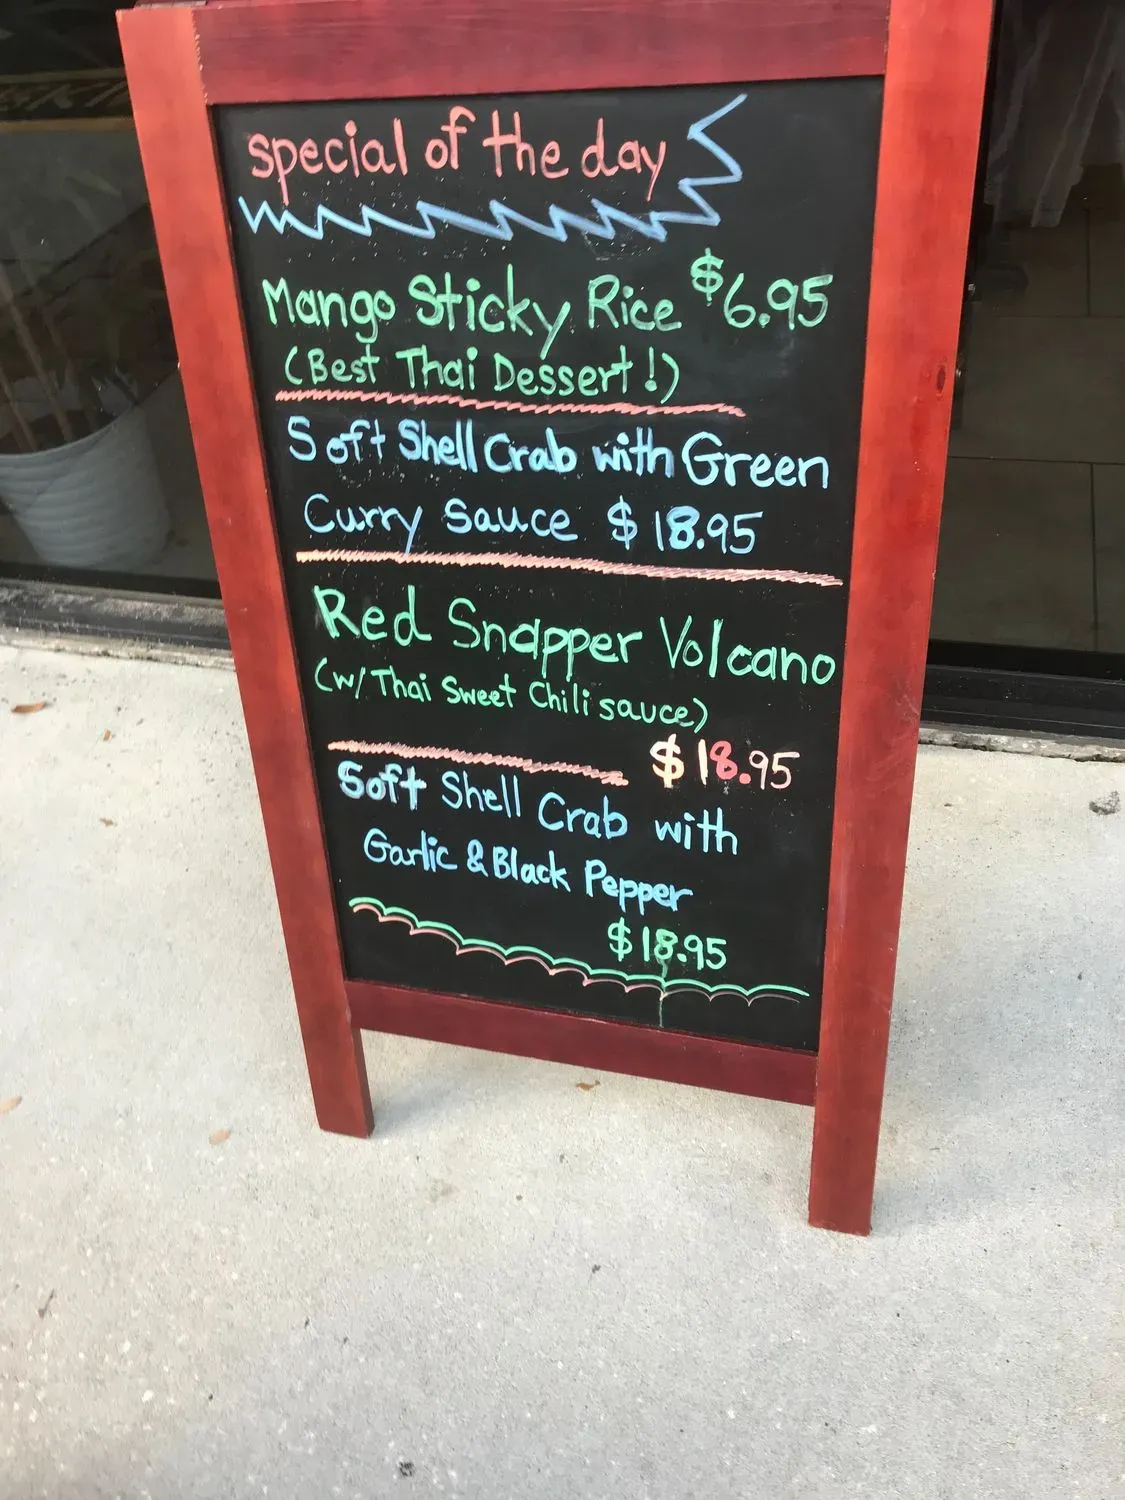 special of the day
Mango Sticky Rice $6.95
(Best Thai Dessert!)
Soft Shell Crab with Green
Curry Sauce $18.95
Red Snapper Volcano
(w/ Thai Sweet Chili sauce)
$18.95
Soft Shell Crab with
Garlic & Black Pepper
$18.95